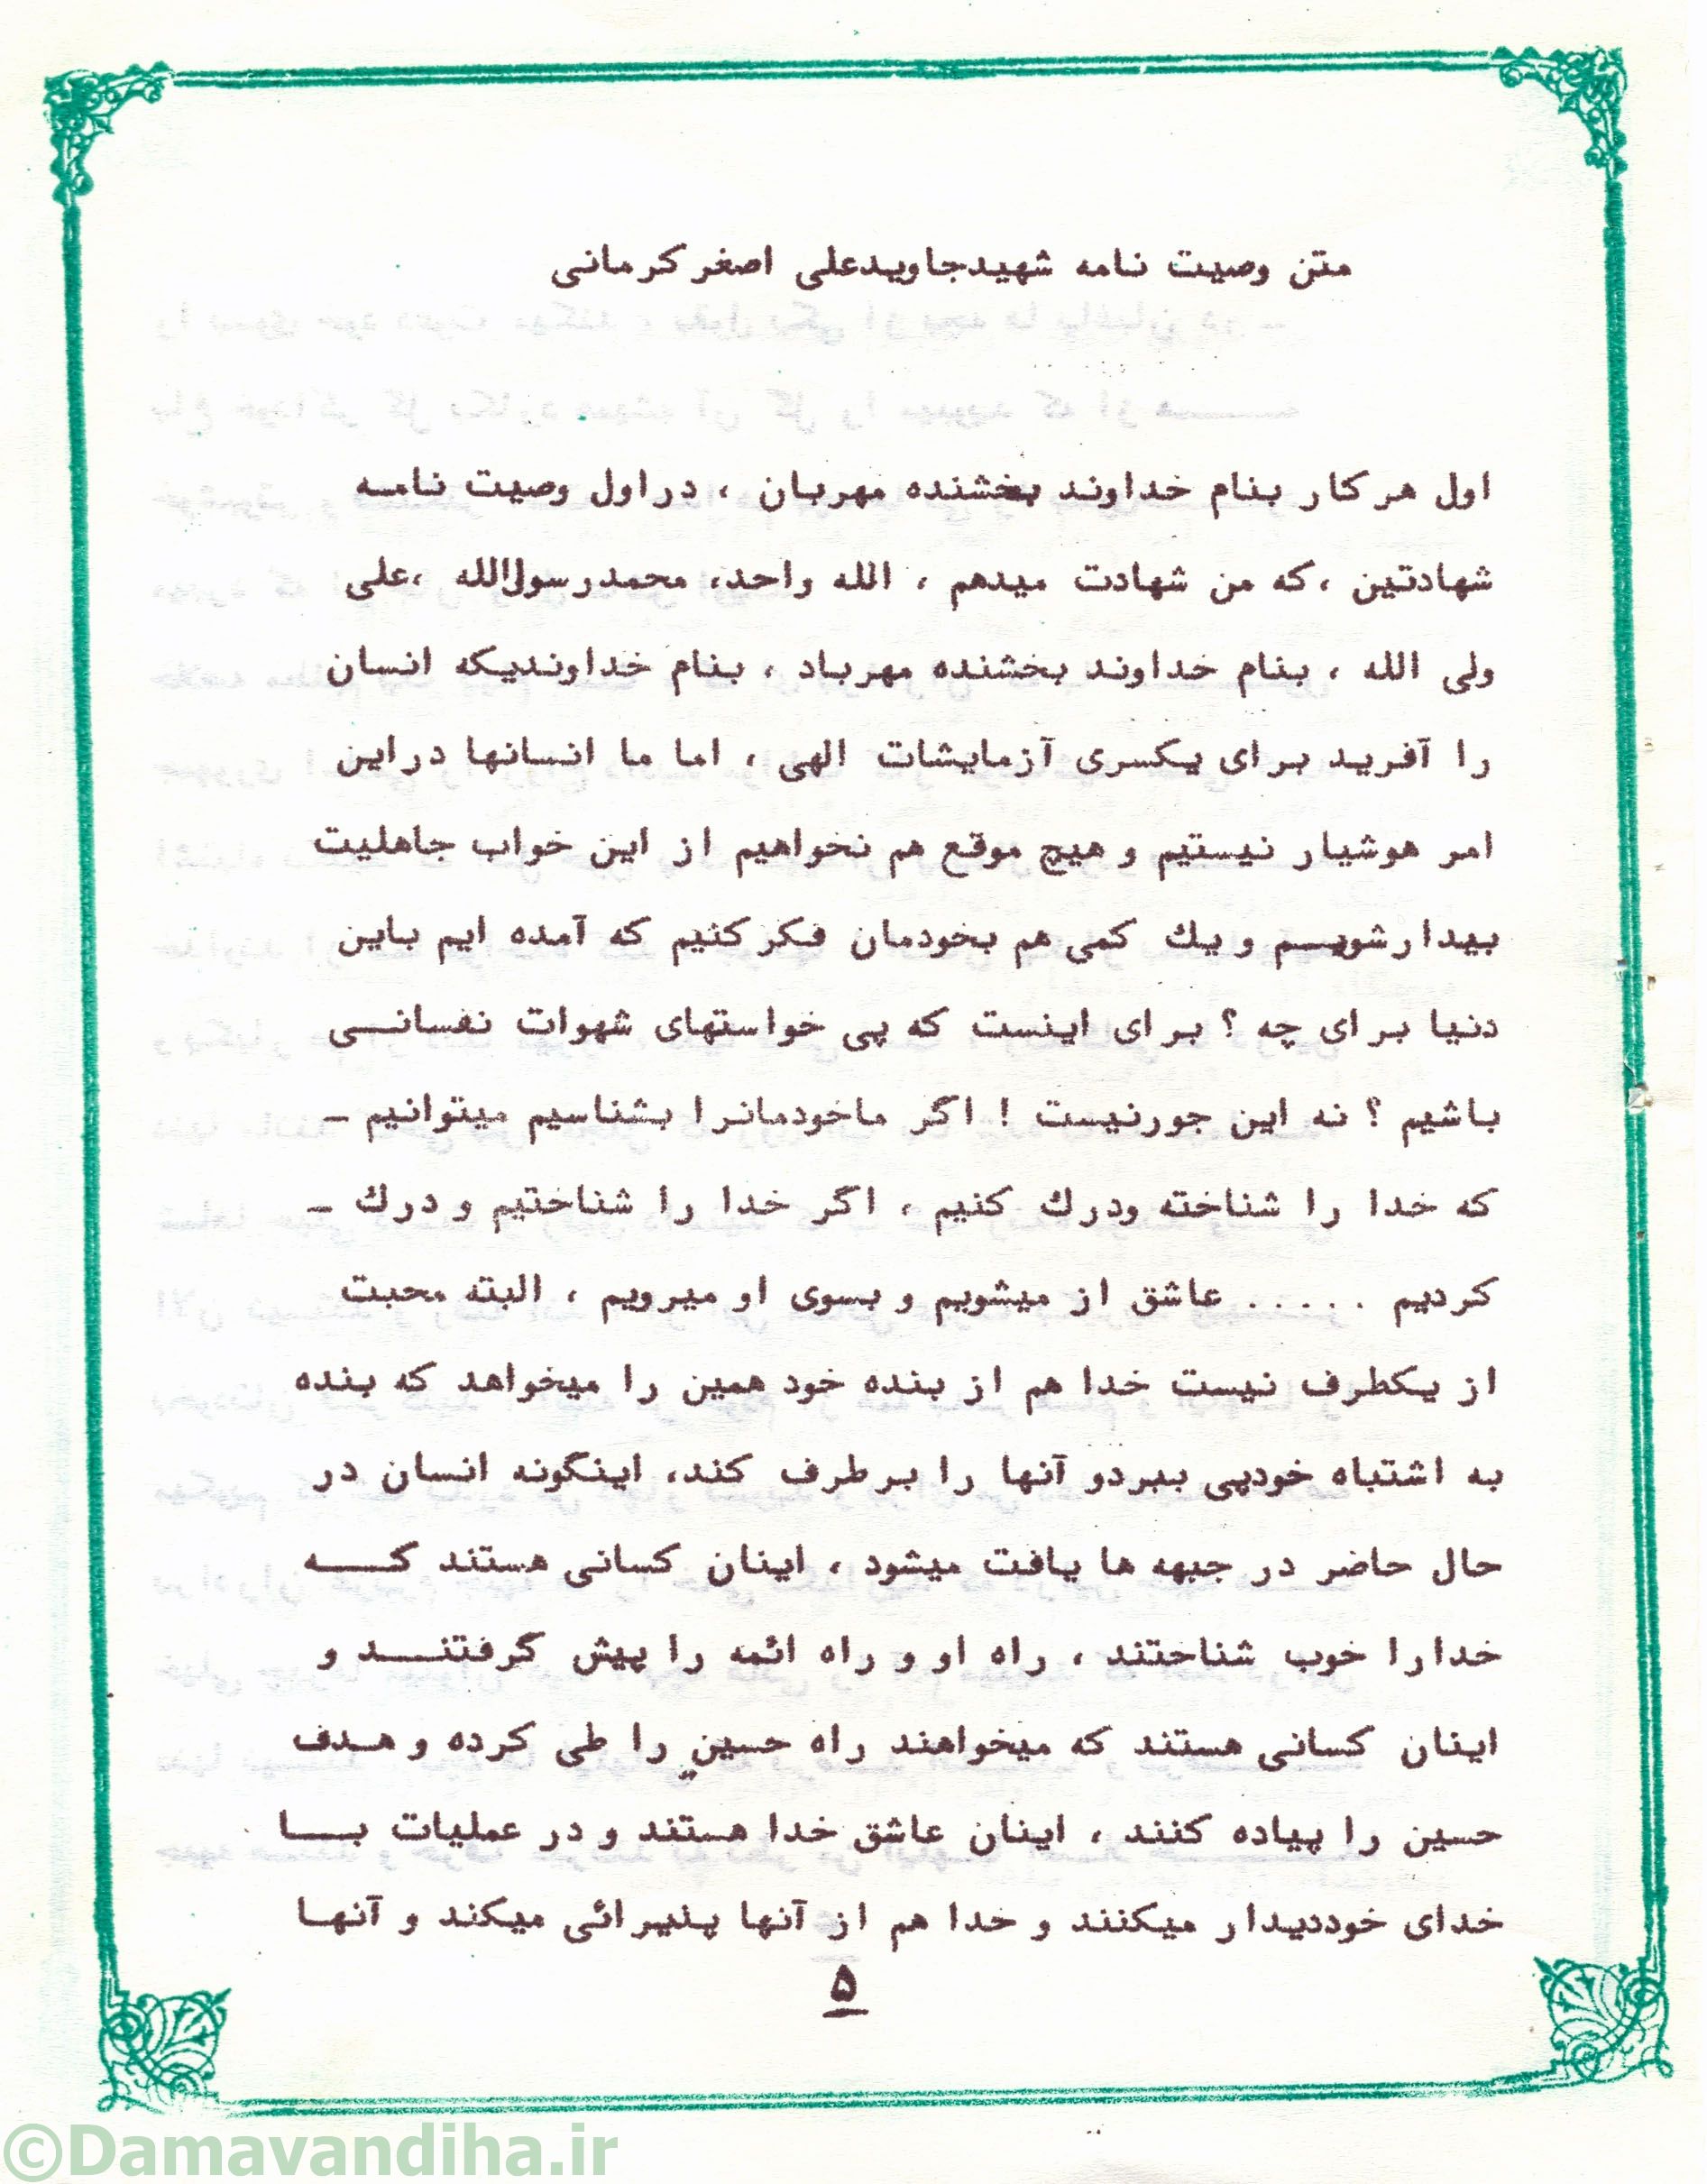 متن وصیت نامه شهیدجاویدعلی اصغرکرمانی
اول هرکار بنام خداوند بخشنده مهربان ، دراول وصیت نامـه
شهادتین ،که من شهادت میدهم ، الله واحد، محمدرسول‌الله ،علی
ولی الله ، بنام خداوند بخشنده مهرباد ، بنام خداوندیکه انسان
را آفرید برای یکسری آزمایشات الهی ، اما ما انسانها دراین
امر هوشیار نیستیم و هیچ موقع هم نخواهیم از این خواب جاهلیت
بیدارشویـم و یك کمی هم بخودمان فکرکنیم که آمده ایم باین
دنیا برای چه ؟ برای اینست که پی خواستهای شهوات نفسانـی
باشیم ؟ نه این جورنیست ! اگر ماخودمانرا بشناسیم میتوانیم ـ
که خدا را شناخته ودرك کنیم ، اگر خدا را شناختیم و درك ـ
کردیم ..... عاشق از میشویم و بسوی او میرویم ، البته محبت
از یکطرف نیست خدا هم از بنده خود همین را میخواهد که بنده
به اشتباه خودپی ببردو آنها را برطرف کند، اینگونه انسان در
حال حاضر در جبهه ها یافت میشود ، اینان کسانی هستند کـــه
خدارا خوب شناختند ، راه او و راه ائمه را پیش گرفتنـــد و
اینان کسانی هستند که میخواهند راه حسین را طی کرده و هـدف
حسین را پیاده کنند ، اینان عاشق خدا هستند و در عملیات بــا
خدای خوددیدار میکنند و خدا هم از آنها پذیرائی میکند و آنهـا
۵
©Damavandiha.ir